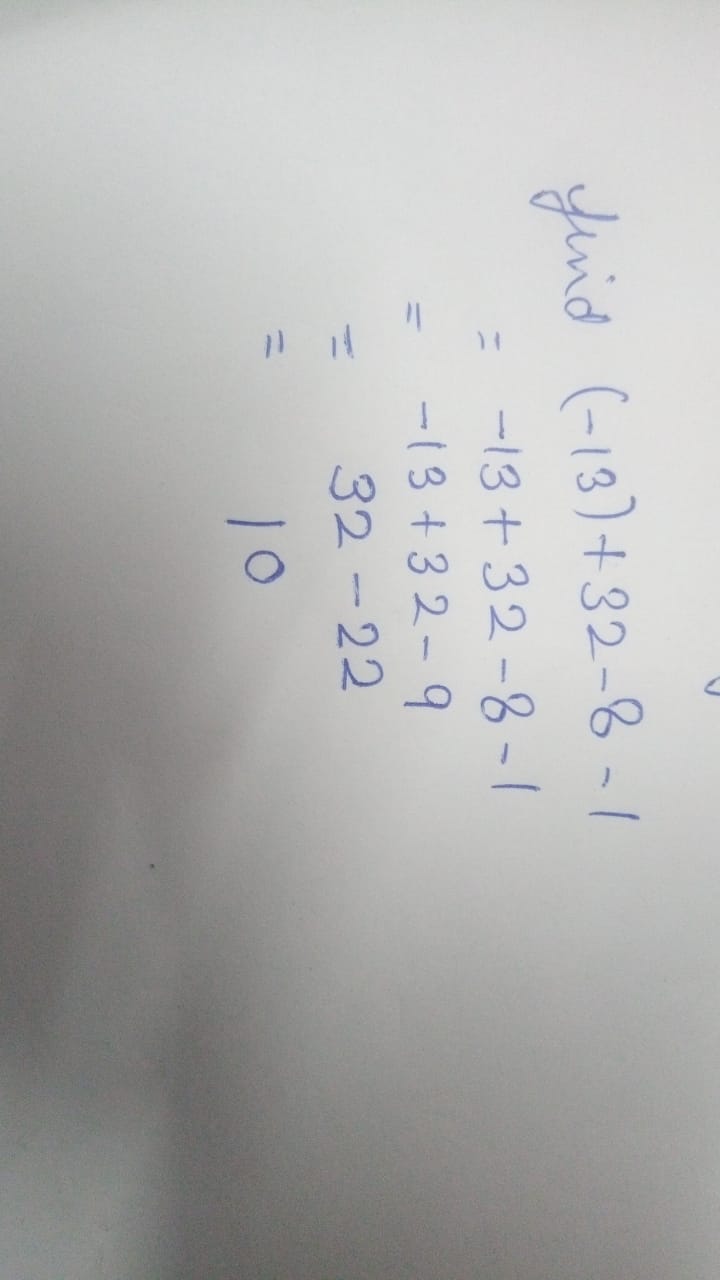 find (-13)+32-8-1
= -13+32-8-1
= -13+32-9
= 32-22
= 10